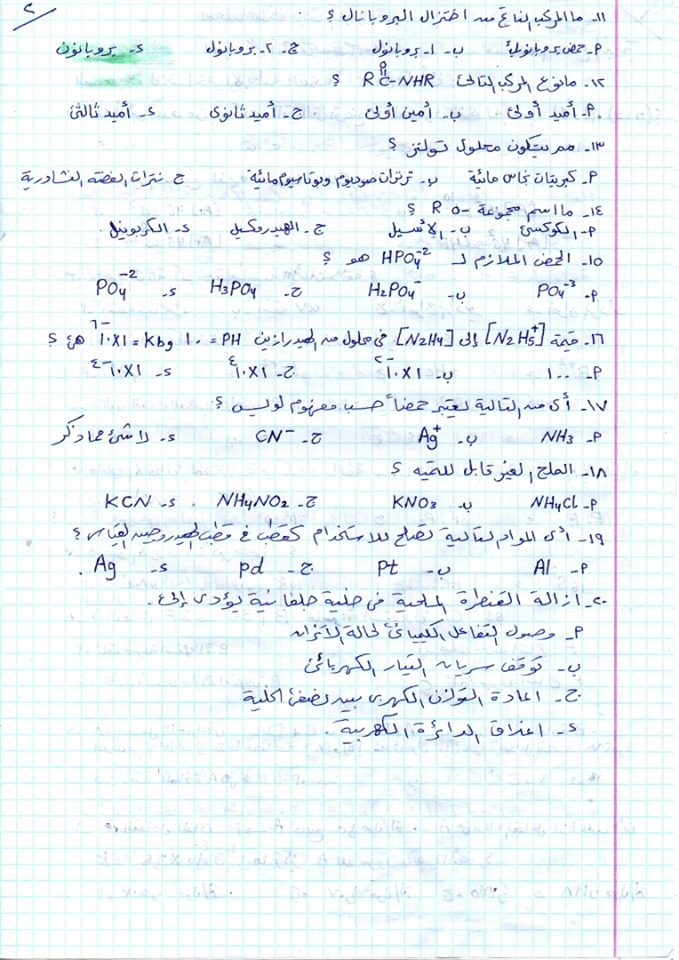 ٢
١١- ما المركب الناتج من اختزال البروبانال ؟
م- حمض بروبانويك ب- ١-بروبانول ج- ٢-بروبانول د- بروبانون
١٢- مانوع المركب التالي R C-NHR ؟
O
م- أميد أولي ب- أمين أولي ج- أميد ثانوي د- أميد ثالثي
١٣- مم يتكون محلول تولنز ؟
م- كبريتات نحاس مائية ب- ترترات صوديوم وبوتاسيوم مائية ج- نترات الفضة النشادرية
١٤- ما اسم مجموعة R O- ؟
م- الكوكسي ب- الأسيل ج- الهيدروكسيل د- الكربونيل
١٥- الحمض الملازم لـ HPO4-2 هو ؟
م- PO4-3 ب- H2PO4- ج- H3PO4 د- PO4-2
١٦- قيمة [N2H5+] إلى [N2H4] في محلول من الهيدرازين PH = ١٠ و Kb = ١×١٠-٦ هي ؟
م- ١٠٠ ب- ١×١٠-٢ ج- ١×١٠٤ د- ١×١٠-٤
١٧- أي من التالية يعتبر حمضاً حسب مفهوم لويس ؟
م- NH3 ب- Ag+ ج- CN- د- لا شئ مما ذكر
١٨- الملح الغير قابل للتميه ؟
م- NH4Cl ب- KNO3 ج- NH4NO2 د- KCN
١٩- أي المواد التالية تصلح للاستخدام كقطب في قطب الهيدروجين القياسي ؟
م- Al ب- Pt ج- pd د- Ag
٢٠- ازالة القنطرة الملحية في خلية جلفانية يؤدي إلى.
م- وصول التفاعل الكيميائي لحالة الاتزان
ب- توقف سريان التيار الكهربائي
ج- اعادة التوازن الكهربي بين نصفي الخلية
د- اغلاق الدائرة الكهربية.